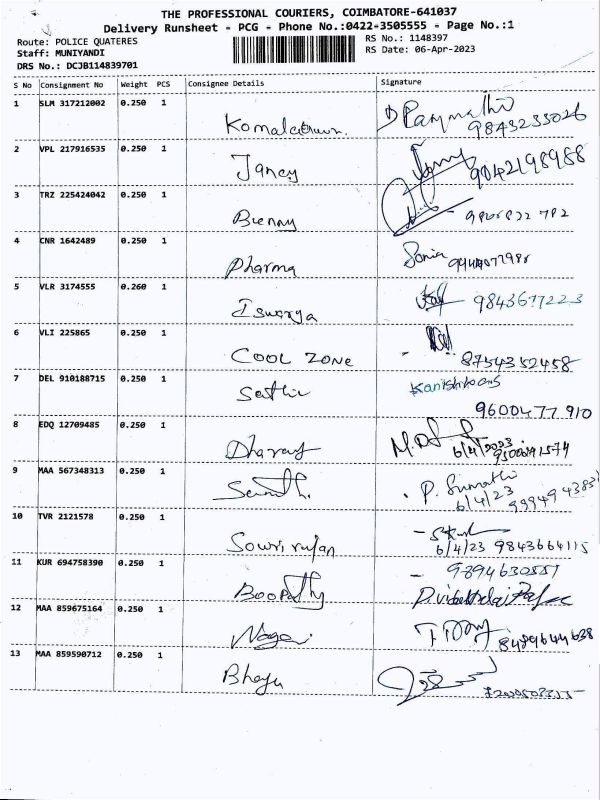 THE PROFESSIONAL COURIERS, COIMBATORE-641037
Delivery Runsheet - PCG - Phone No.:0422-3505555 - Page No.:1
Route: POLICE QUATERES
RS No.: 1148397
Staff: MUNIYANDI
RS Date: 06-Apr-2023
DRS No.: DCJB114839701
S No Consignment No Weight PCS Consignee Details Signature
1 SLM 317212002 0.250 1
9843233026
2 VPL 217916535 0.250 1 Jancy
9042198988
3 TRZ 225424042 0.250 1 Bienny
4 CNR 1642489 0.250 1 Pharma Sonia
5 VLR 3174555 0.260 1 Iswarya 9843677223
6 VLI 225865 0.250 1 COOL ZONE
8754352458
7 DEL 910188715 0.250 1 Sathi
9600477910
8 EDQ 12709485 0.250 1 Dharas
6/4/2023
9 MAA 567348313 0.250 1 P. Sumathi
6/4/23
10 TVR 2121578 0.250 1
6/4/23 9843664115
11 KUR 694758390 0.250 1 Boopathy 9894630551
12 MAA 859675164 0.250 1 Nagai
8489644638
13 MAA 859590712 0.250 1